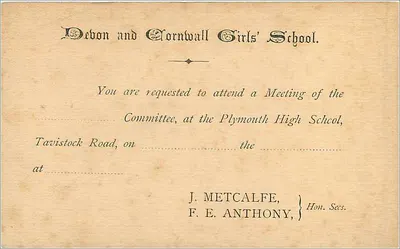 Devon and Cornwall Girls' School.
You are requested to attend a Meeting of the
Committee, at the Plymouth High School,
Tavistock Road, on the
at
J. METCALFE,
F. E. ANTHONY, } Hon. Secs.